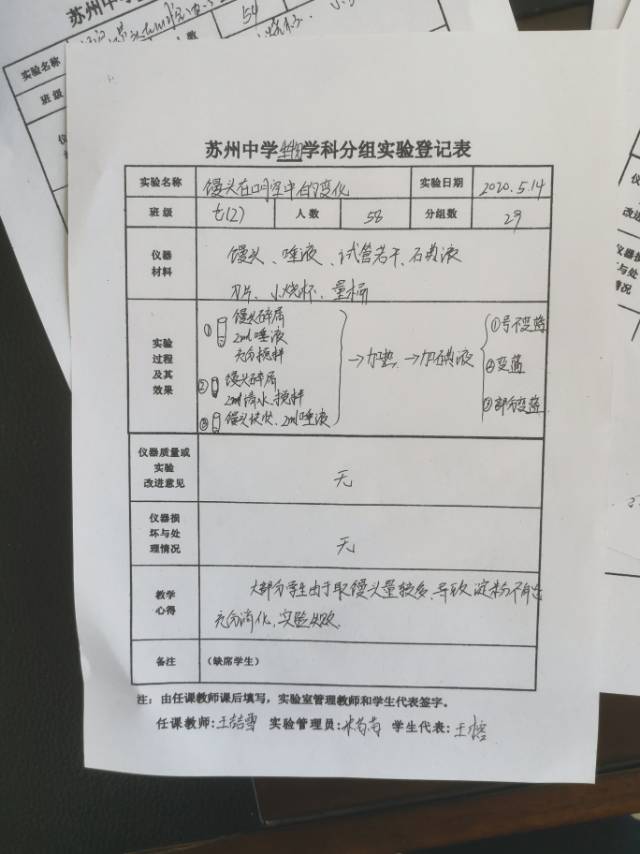 苏州中学
54
实验名称
班 级
苏州中学生物学科分组实验登记表
实验名称 馒头在口腔中的变化 实验日期 2020.5.14
班 级 七(2) 人 数 58 分组数 29
仪器材料 馒头、唾液、试管若干、石碘液
刀片、小烧杯、量桶
实验过程及其效果
① 馒头碎屑
2ml唾液
充分搅拌
② 馒头碎屑
2ml清水、搅拌
③ 馒头块状、2ml唾液
→加热→加碘液
①号不变蓝
②变蓝
③部分变蓝
仪器质量或实验改进意见 无
仪器损坏与处理情况 无
教学心得 大部分学生由于取馒头量较多、导致淀粉不能
充分消化,实验失败.
备注 (缺席学生)
注:由任课教师课后填写,实验室管理教师和学生代表签字。
任课教师: 实验管理员: 学生代表: